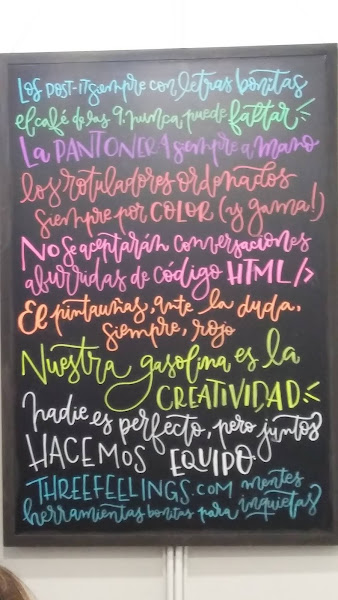 Los POST-IT siempre con letras bonitas
el café de las 9, nunca puede faltar
La PANTONERA siempre a mano
los rotuladores ordenados
siempre por COLOR (¡y gama!)
No se aceptarán conversaciones
aburridas de código HTML/>
El pintauñas, ante la duda,
siempre, rojo
Nuestra gasolina es la
CREATIVIDAD
Nadie es perfecto, pero juntos
HACEMOS EQUIPO
THREEFEELINGS.COM mentes
herramientas bonitas para inquietas